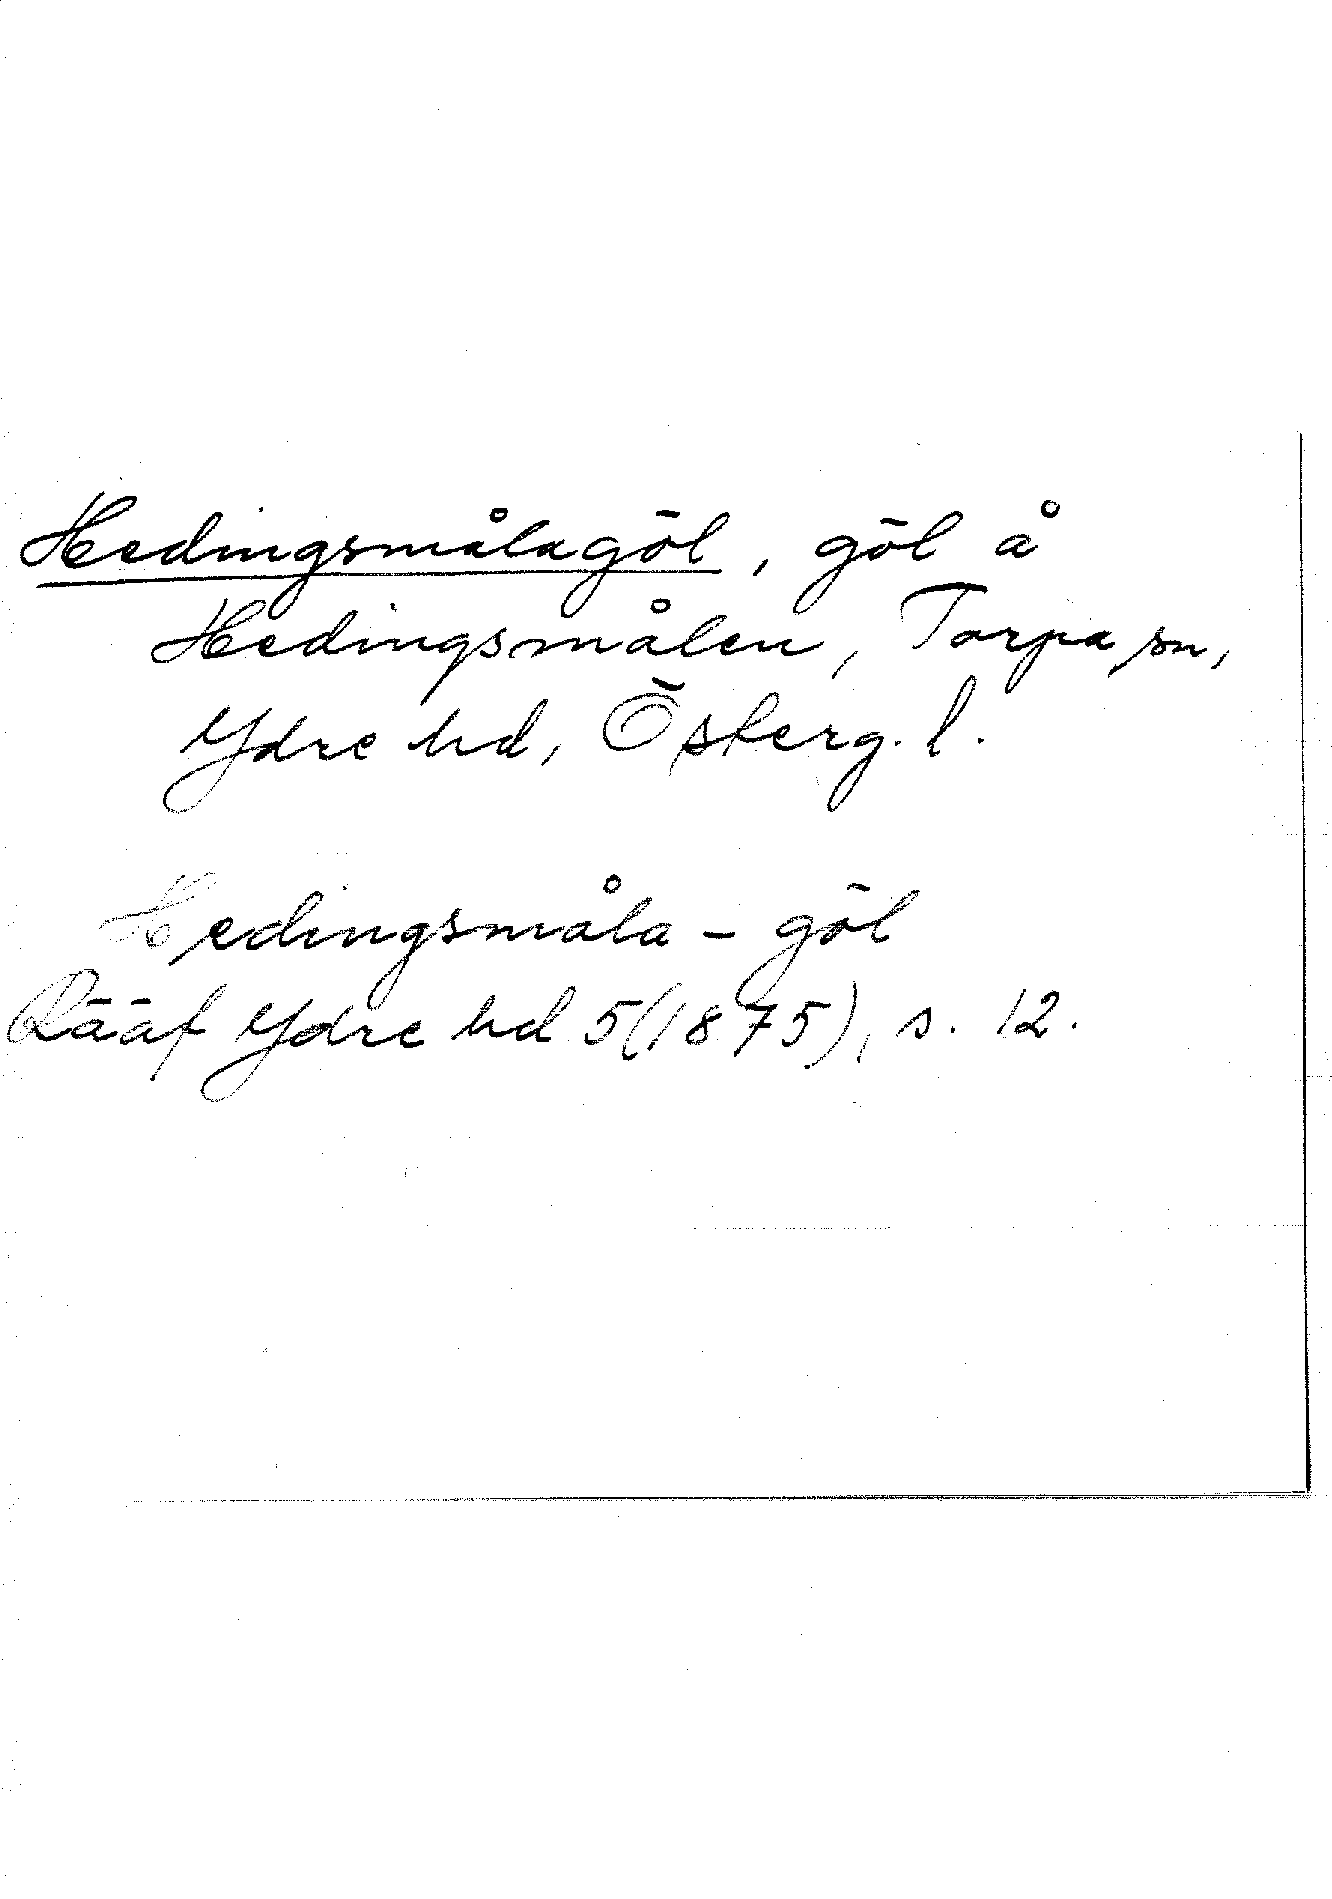 Hedingsmålagöl, göl å
Hedingsmålen, Torpa sn,
Ydre hd, Österg. l.
Hedingsmåla - göl
Rääf Ydre hd 5(1875), s. 12.